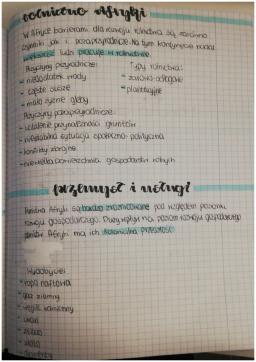 Rolnictwo Afryki
W Afryce barierami dla rozwoju rolnictwa są zarówno
czynniki jak i pozaprzyrodnicze. Na tym kontynencie nadal
większość ludzi pracuje w rolnictwie.
Przyczyny przyrodnicze: Typy rolnictwa:
- niedostatek wody - żarowo-odłogowe
- częste susze - plantacyjne
- mało żyzne gleby
Przyczyny pozaprzyrodnicze:
- ustalenie przynależności gruntów
- niestabilna sytuacja społeczno-polityczna
- konflikty zbrojne
- niewielka powierzchnia gospodarstw rolnych
Przemysł i usługi
Państwa Afryki są bardzo zróżnicowane pod względem poziomu
rozwoju gospodarczego. Duży wpływ na poziom rozwoju gospodarczego
państw Afryki ma ich kolonialna przeszłość.
Wydobywa:
- ropa naftowa
- gaz ziemny
- węgiel kamienny
- uran
- żelazo
- złoto
- diamenty